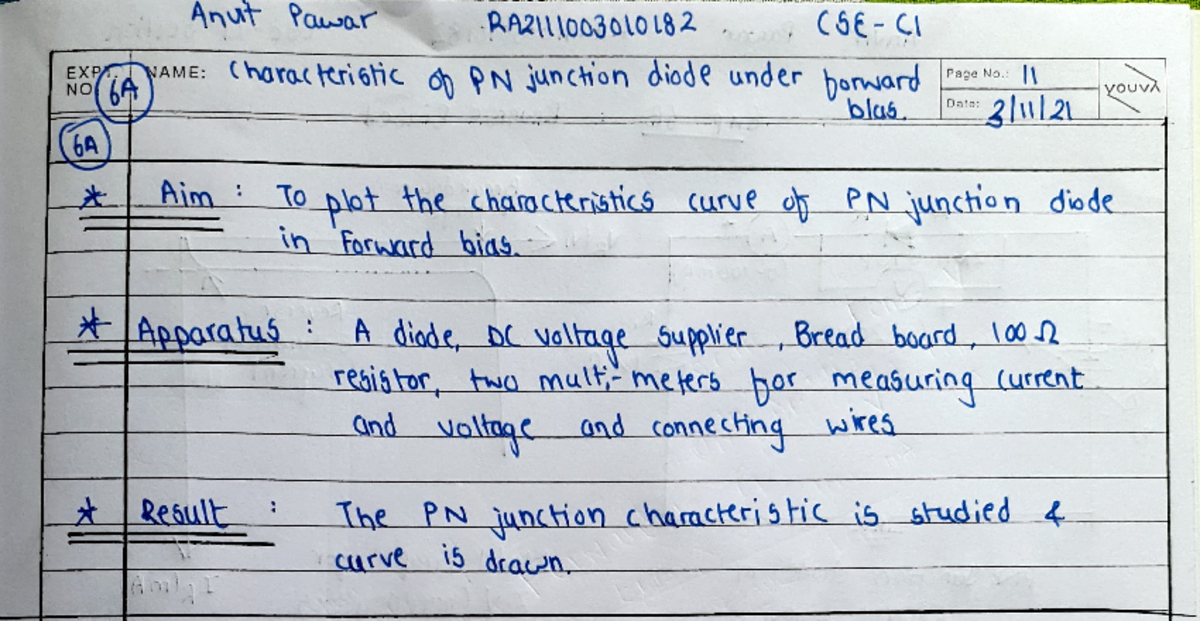 Anut Pawar RA2111003010182 CSE-C1
EXPT. NO. 6A NAME: Characteristic of PN junction diode under forward bias. Page No.: 11
Date: 3/11/21
youva
6A
* Aim : To plot the characteristics curve of PN junction diode
in Forward bias.
* Apparatus : A diode, DC voltage supplier, Bread board, 100 Ω
resistor, two multi-meters for measuring current
and voltage and connecting wires
* Result : The PN junction characteristic is studied &
curve is drawn.